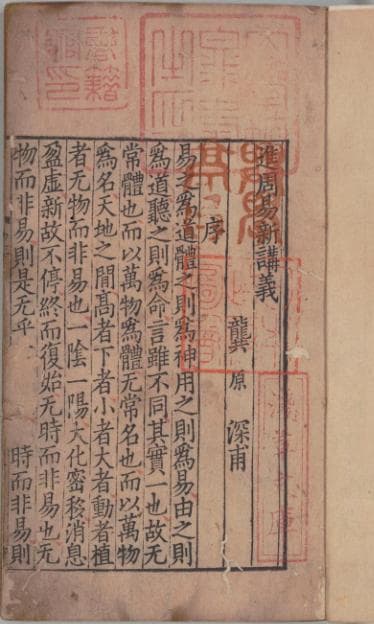 進周易新講義
龔原 深甫
序
易之為道體之則為神用之則為易由之則
為道聽之則為命言雖不同其實一也故无
常體也而以萬物為體无常名也而以萬物
為名天地之間髙者下者小者大者動者植
者无物而非易也一陰一陽大化密移消息
盈虚新故不停終而復始无時而非易也无
物而非易則是无乎 時而非易則